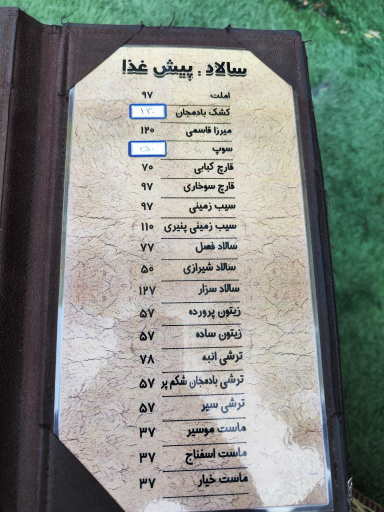 سالاد . پیش غذا
املت ۹۷
کشک بادمجان ۱۲۰
میرزا قاسمی ۱۲۰
سوپ
قارچ کبابی ۷۰
قارچ سوخاری ۹۷
سیب زمینی ۹۷
سیب زمینی پنیری ۱۱۰
سالاد فصل ۷۷
سالاد شیرازی ۵۰
سالاد سزار ۱۲۷
زیتون پرورده ۵۷
زیتون ساده ۵۷
ترشی انبه ۷۸
ترشی بادمجان شکم پر ۵۷
ترشی سیر ۵۷
ماست موسیر ۳۷
ماست اسفناج ۳۷
ماست خیار ۳۷